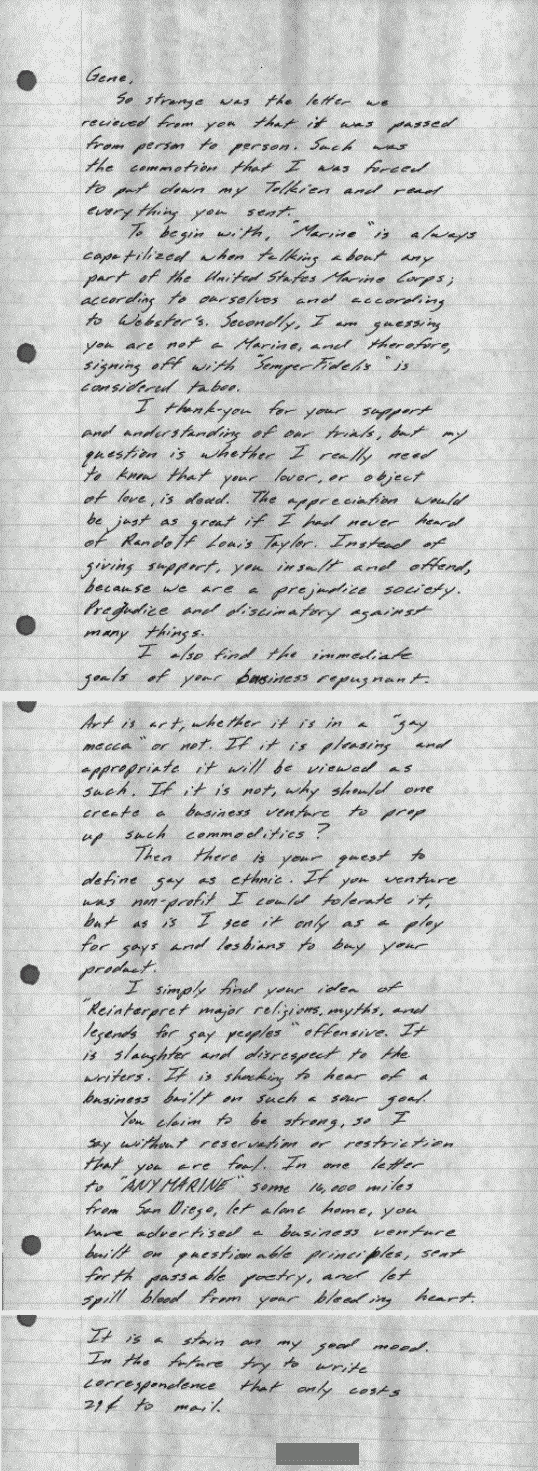 Gene,
So strange was the letter we
recieved from you that it was passed
from person to person. Such was
the commotion that I was forced
to put down my Tolkien and read
everything you sent.
To begin with, "Marine" is always
capatilized when talking about any
part of the United States Marine Corps;
according to ourselves and according
to Webster's. Secondly, I am guessing
you are not a Marine, and therefore,
signing off with "Semper Fidelis" is
considered taboo.
I thank-you for your support
and understanding of our trials, but my
question is whether I really need
to know that your lover, or object
of love, is dead. The appreciation would
be just as great if I had never heard
of Randolf Louis Taylor. Instead of
giving support, you insult and offend,
because we are a prejudice society.
Prejudice and discimatory against
many things.
I also find the immediate
goals of your business repugnant.
Art is art, whether it is in a "gay
mecca" or not. If it is pleasing and
appropriate it will be viewed as
such. If it is not, why should one
create a business venture to prop
up such commodities?
Then there is your quest to
define gay as ethnic. If you venture
was non-profit I could tolerate it,
but as is I see it only as a ploy
for gays and lesbians to buy your
product.
I simply find your idea of
"Reinterpret major religions, myths, and
legends for gay peoples" offensive. It
is slaughter and disrespect to the
writers. It is shocking to hear of a
business built on such a sour goal.
You claim to be strong, so I
say without reservation or restriction
that you are foul. In one letter
to "ANY MARINE" some 16,000 miles
from San Diego, let alone home, you
have advertised a business venture
built on questionable principles, sent
forth passable poetry, and let
spill blood from your bleeding heart.
It is a stain on my good mood.
In the future try to write
correspondence that only costs
29¢ to mail.